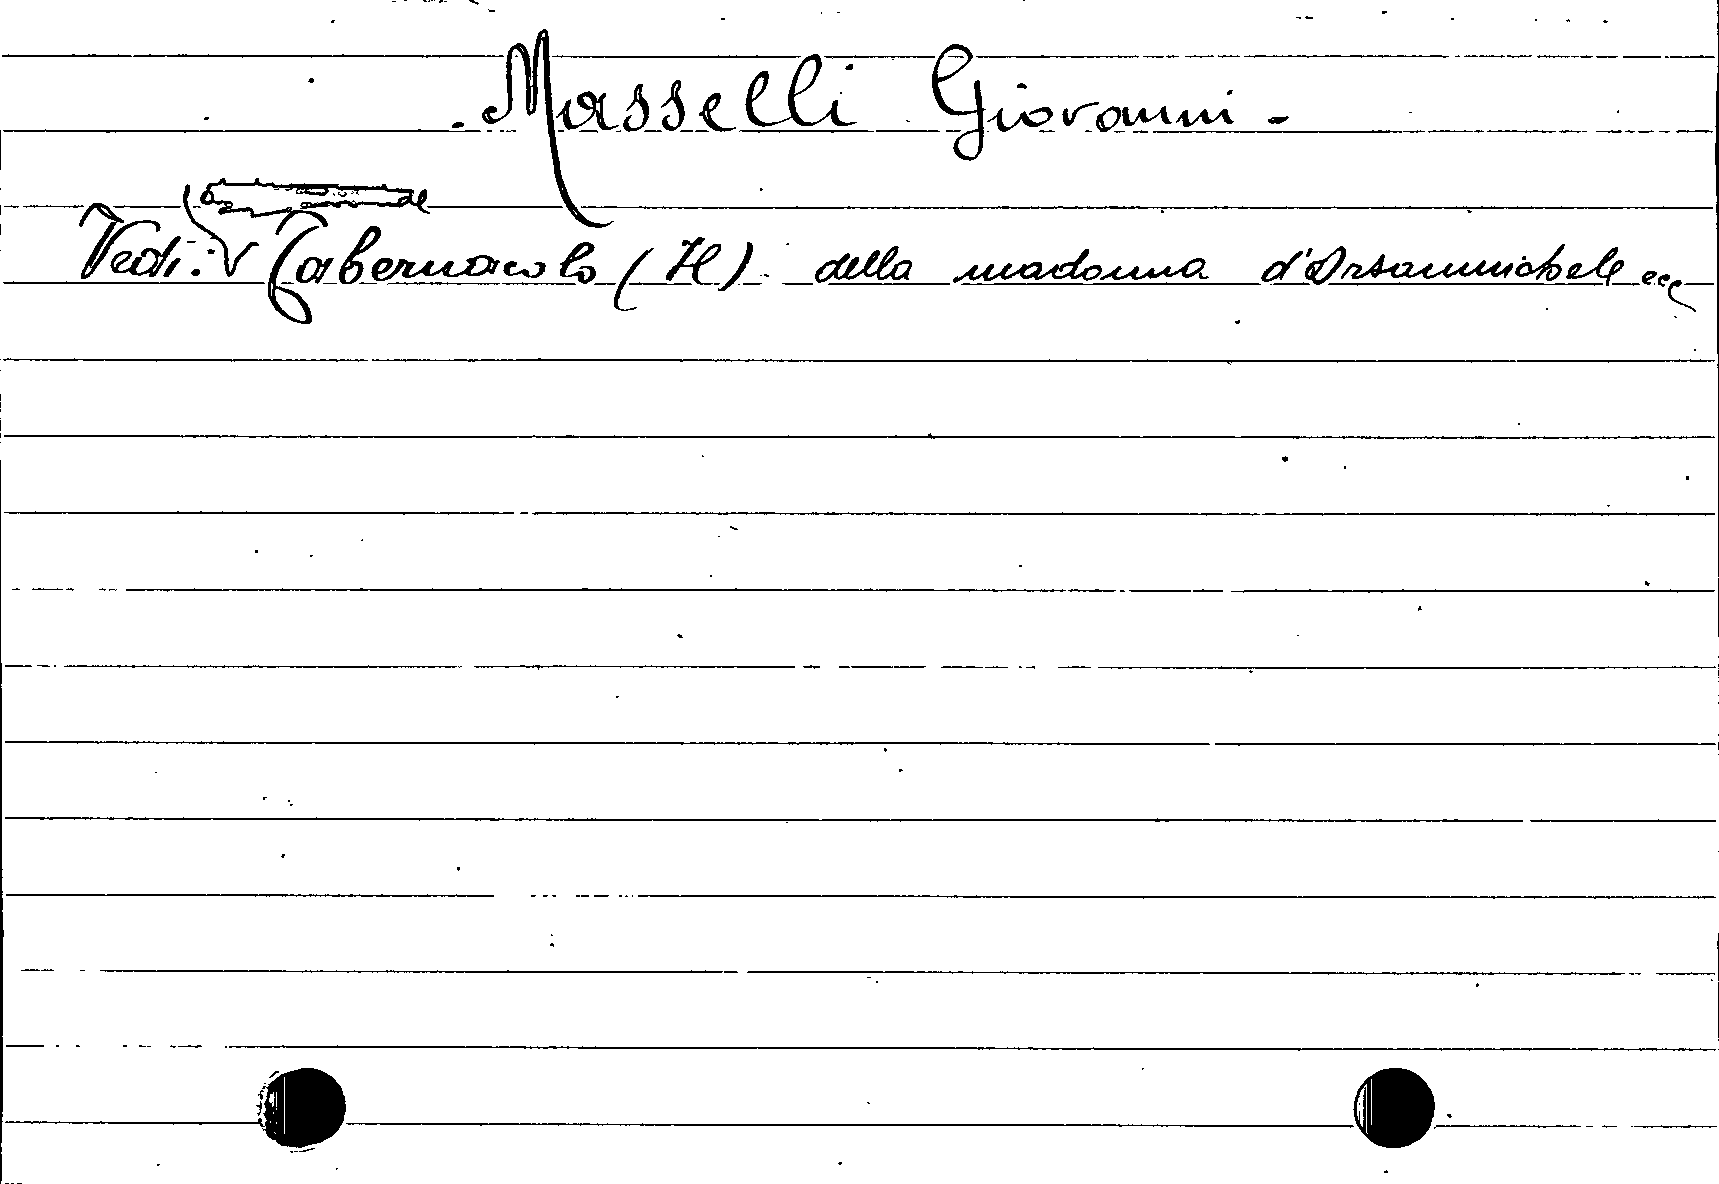 . Masselli Giovanni -
Vedi: Tabernacolo (Il) della madonna d'Orsanmichele ecc